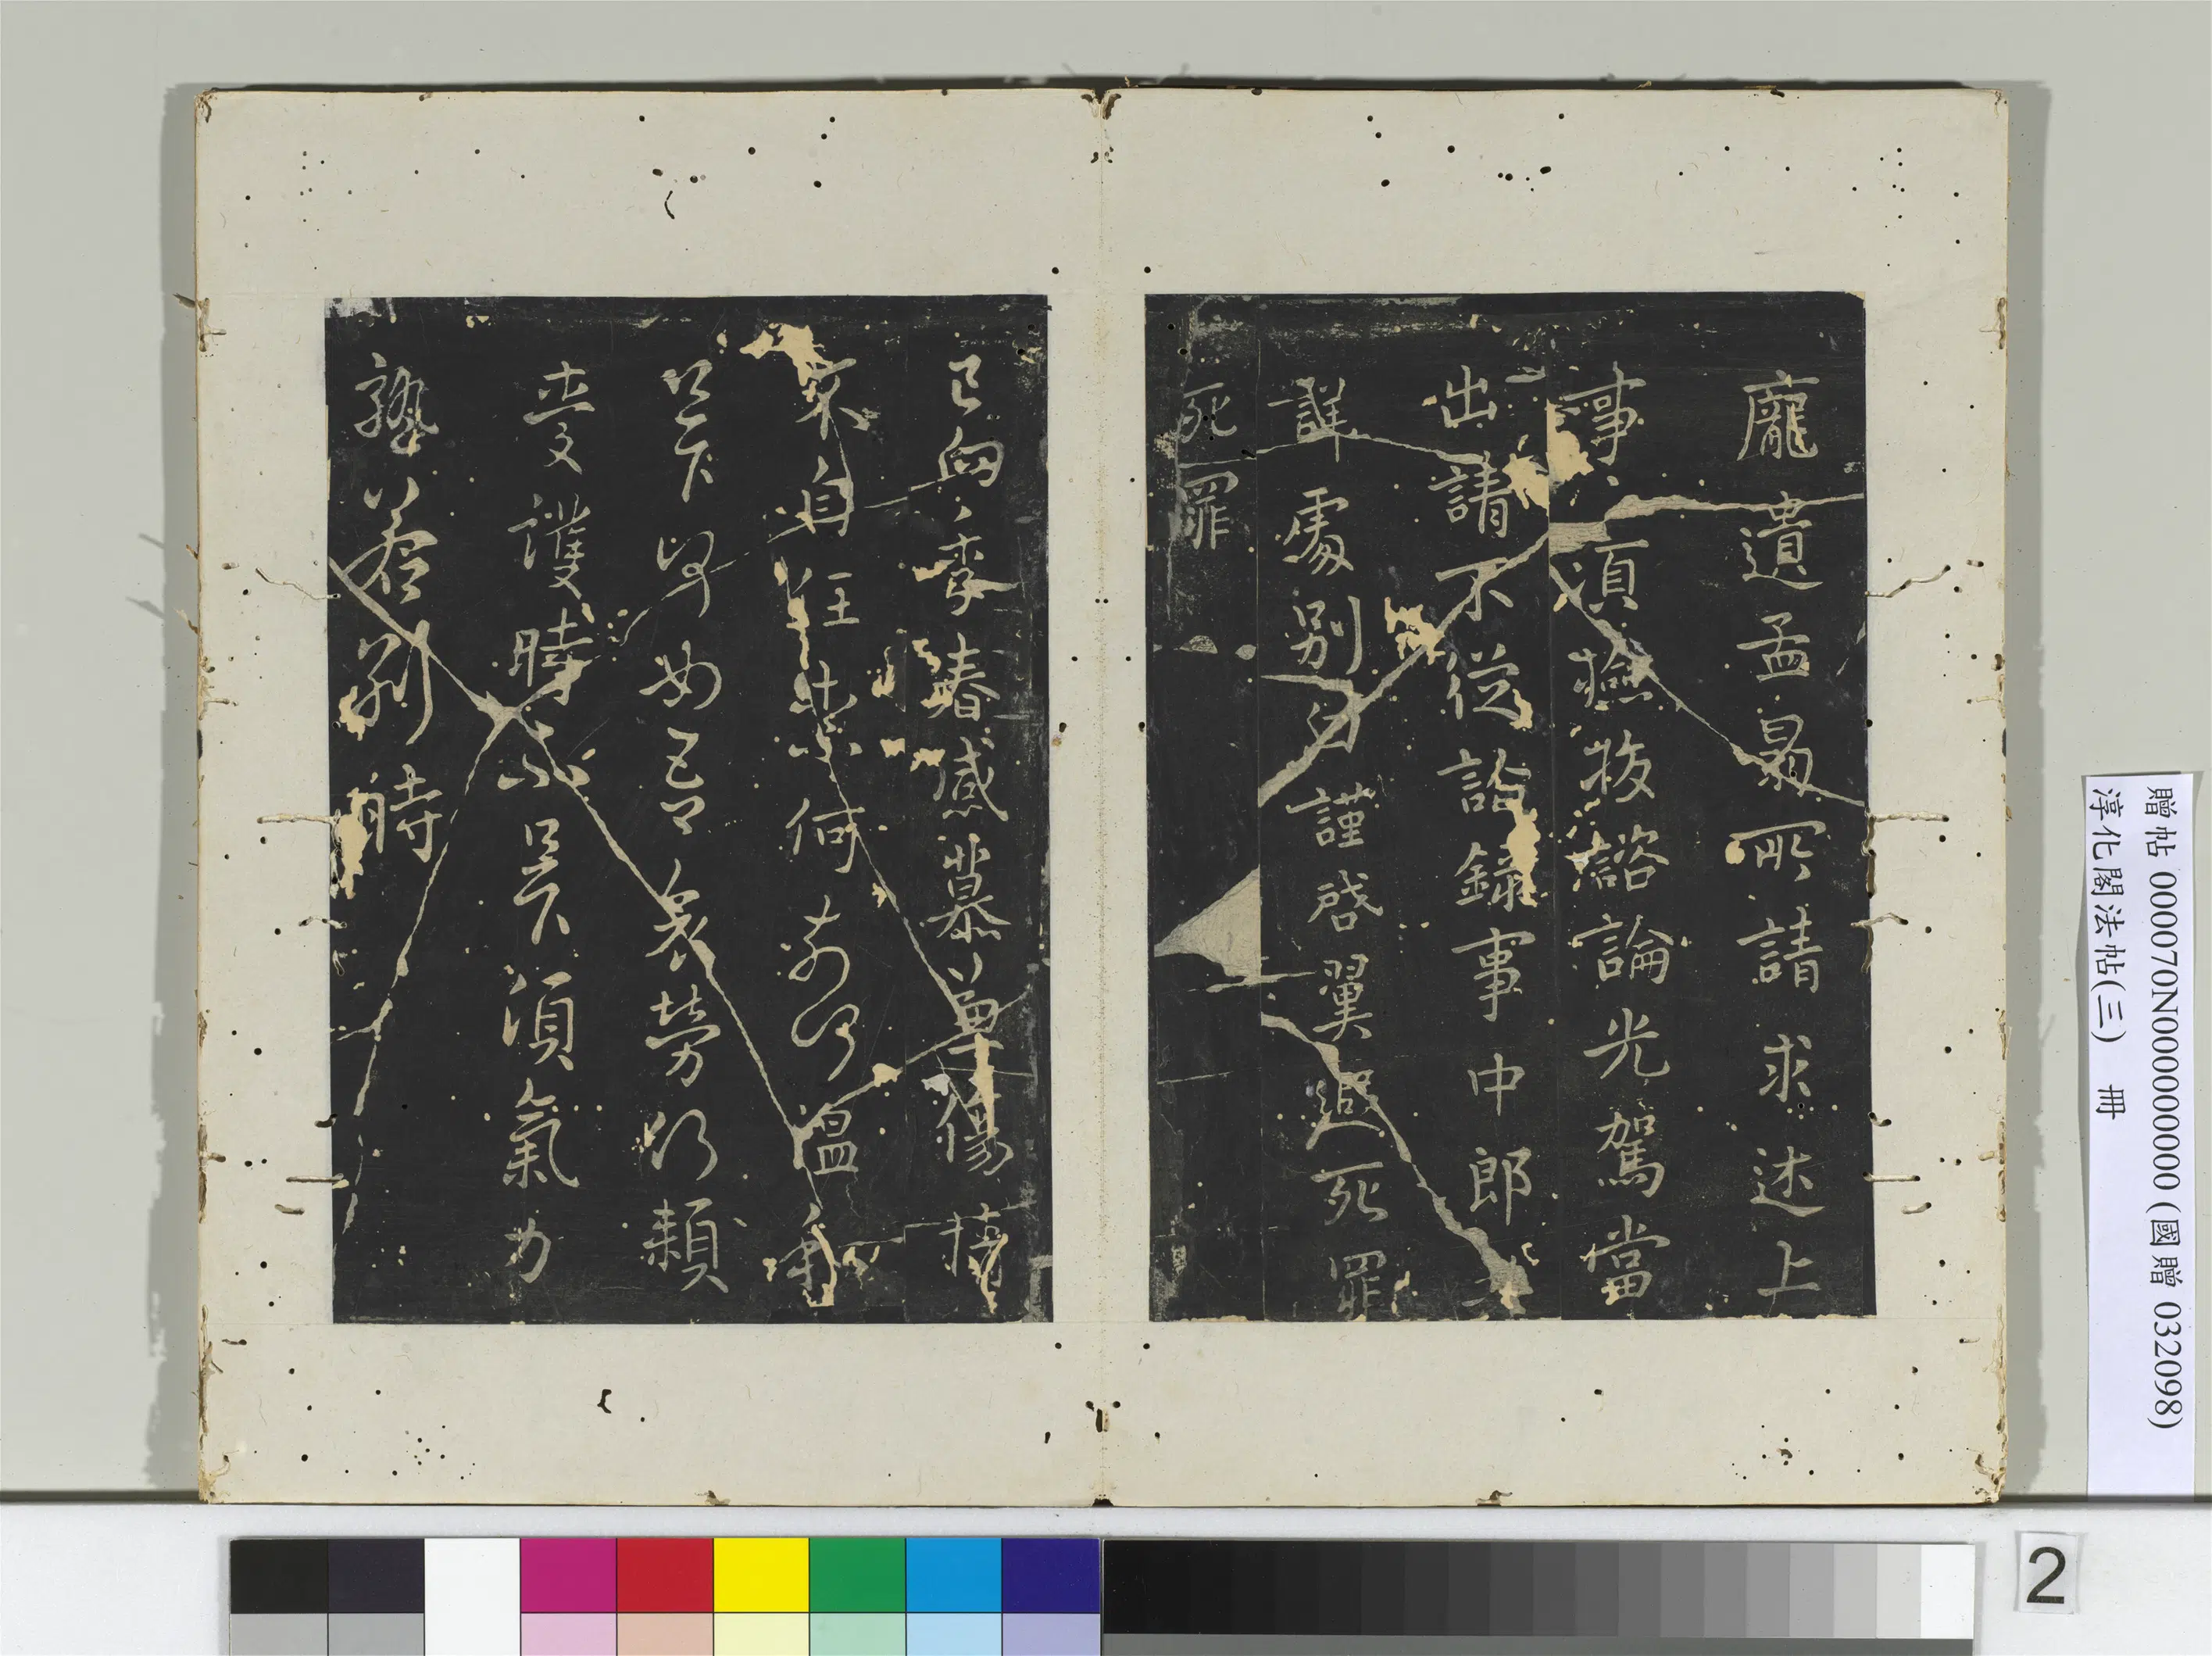 龐遺孟晷所請求述上
事須檢校諮論光駕當
出請不從詣錄事中郎共
詳處別白謹啓翼死罪
死罪
已向季春感慕兼傷情
不自任奈何奈何溫和
足下何如吾哀勞何賴
愛護時不足下須氣力
孰若別時
贈帖 000070N000000000 (國贈 032098)
淳化閣法帖(三) 冊
2